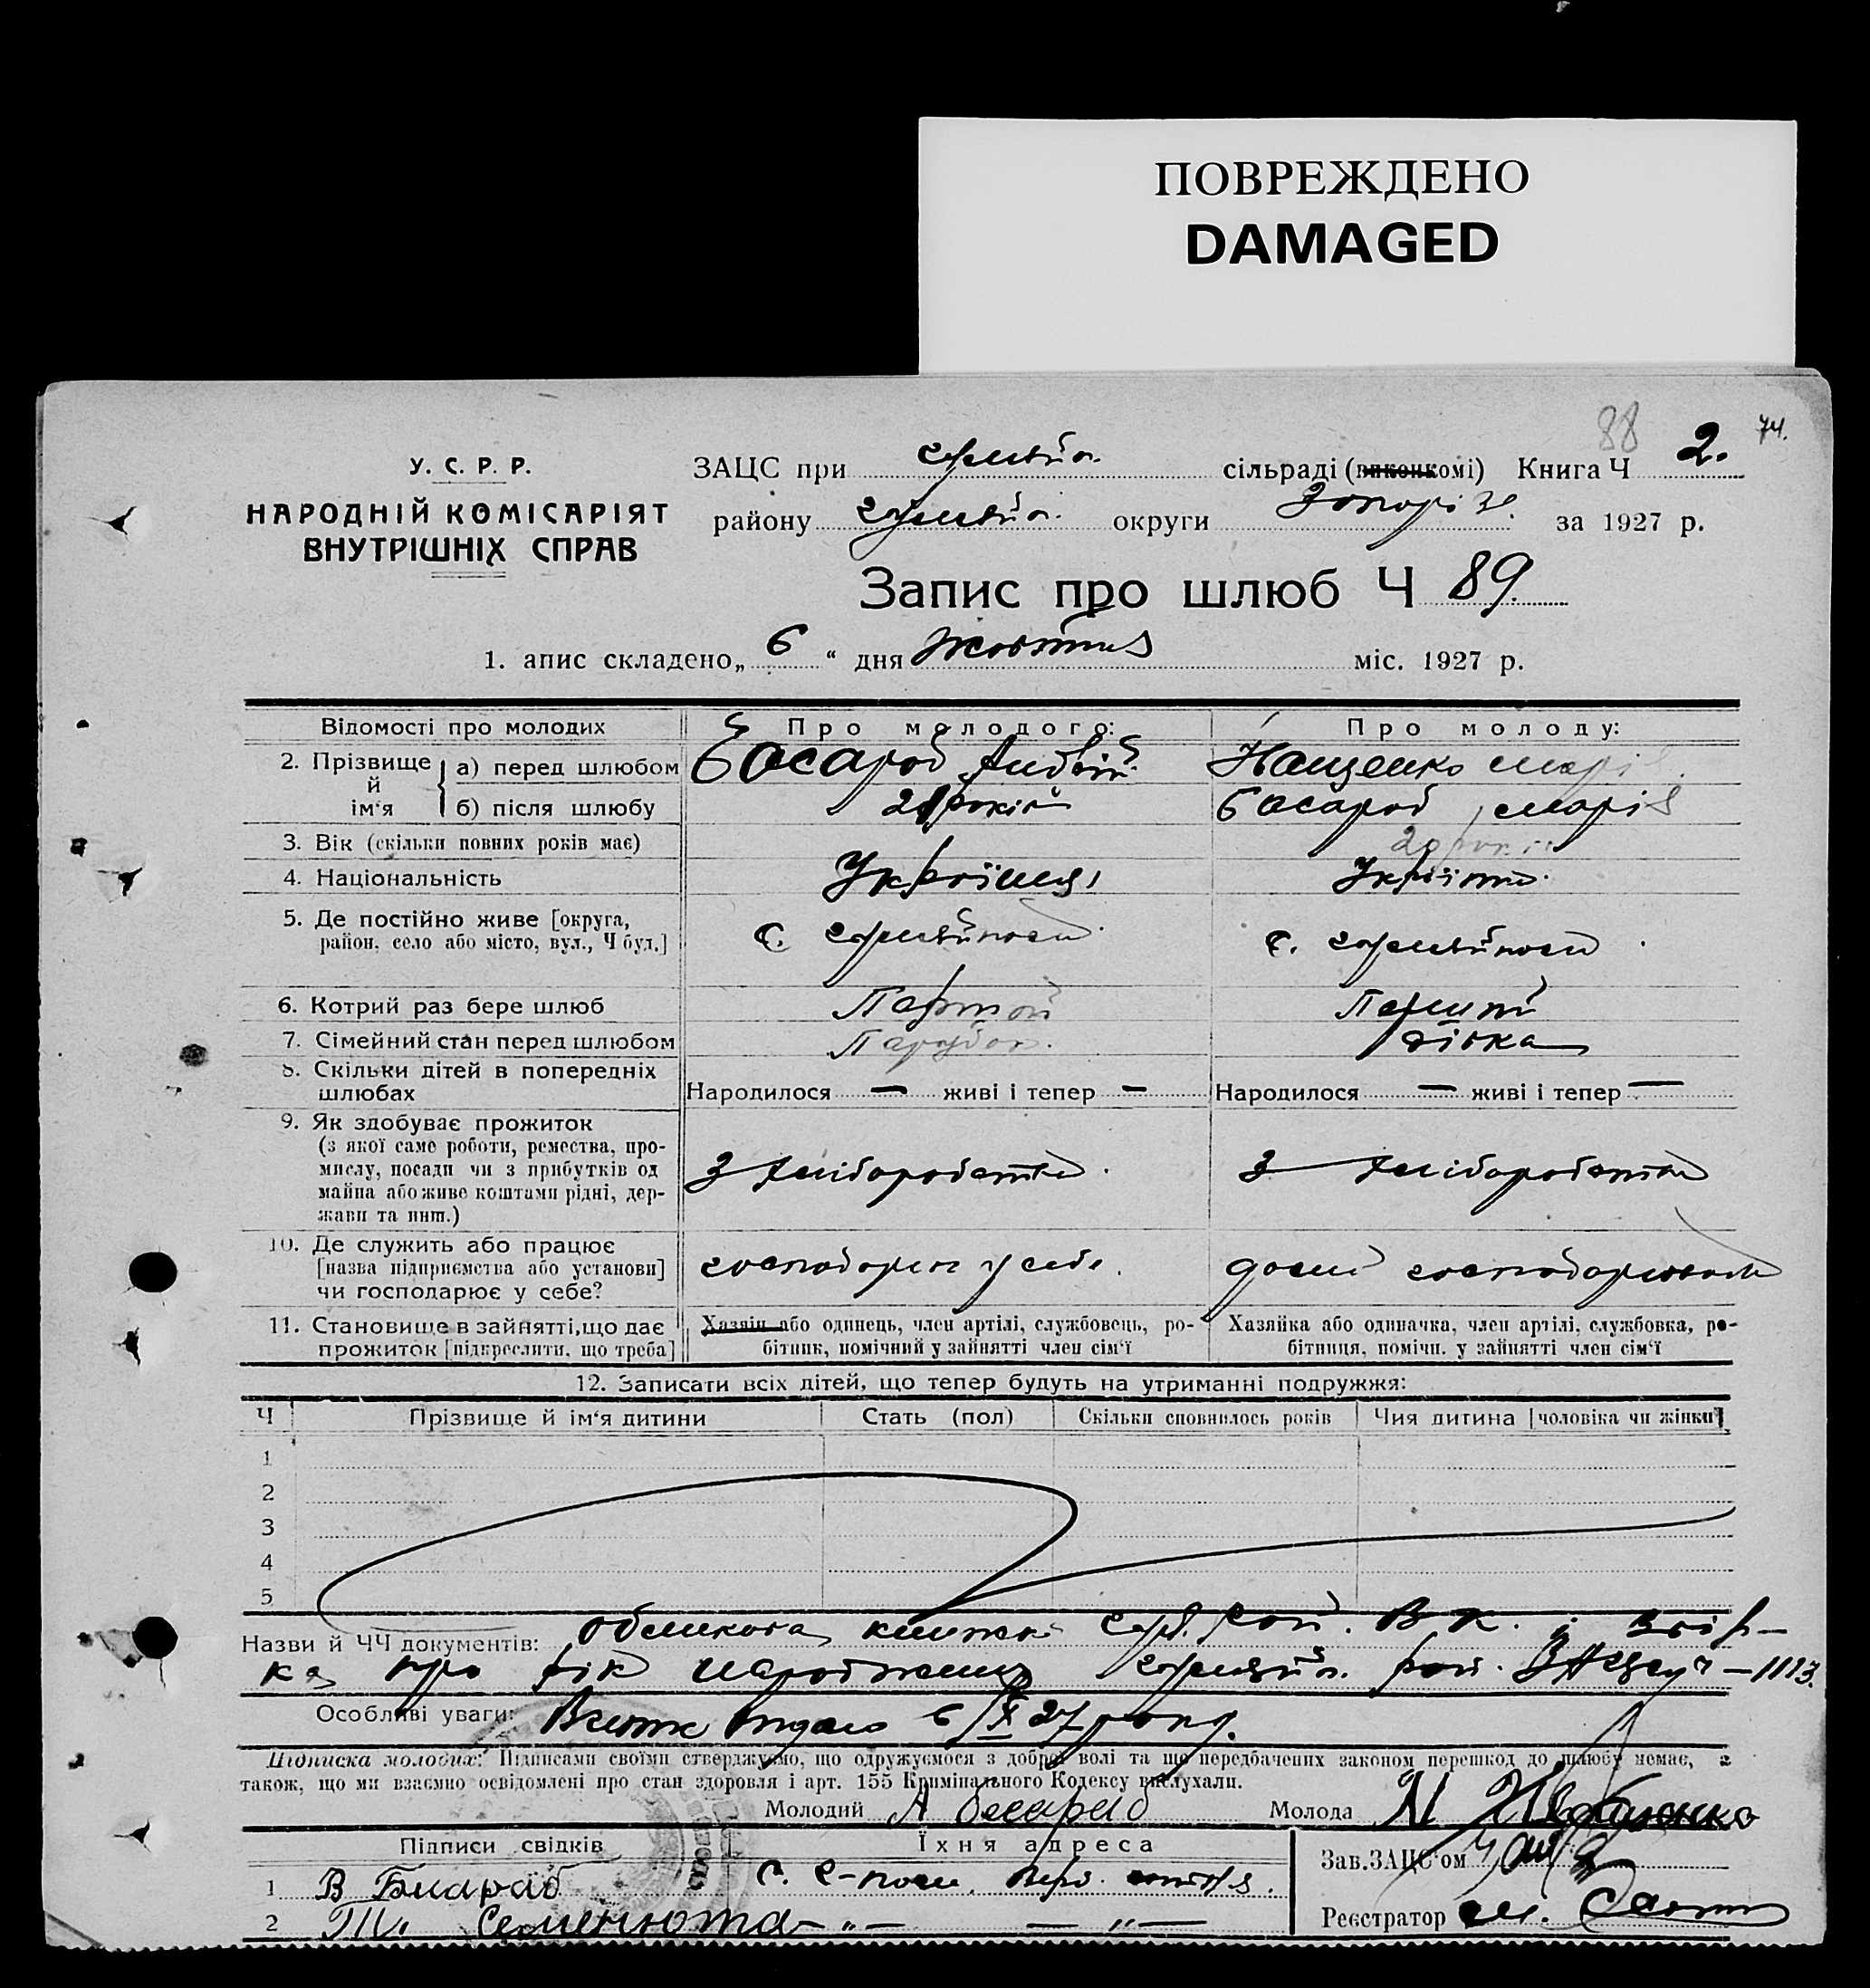 ПОВРЕЖДЕНО
DAMAGED
88 2. 74.
У. С. Р. Р.
НАРОДНІЙ КОМІСАРІЯТ
ВНУТРІШНІХ СПРАВ
ЗАЦС при сільраді (виконкомі) Книга Ч 2.
району округи Запоріз. за 1927 р.
Запис про шлюб Ч 89.
1. апис складено „ 6 “ дня Жовтня міс. 1927 р.
Відомості про молодих Про молодого: Про молоду:
2. Прізвище й ім‘я
а) перед шлюбом Марія
б) після шлюбу 21 років Марія
3. Вік (скільки повних років має) 20
4. Національність Українець Україн.
5. Де постійно живе [округа,
район, село або місто, вул., Ч буд.] с. с.
6. Котрий раз бере шлюб Перший Перший
7. Сімейний стан перед шлюбом Парубок. Дівка
8. Скільки дітей в попередніх
шлюбах Народилося — живі і тепер — Народилося — живі і тепер —
9. Як здобуває прожиток
(з якої саме роботи, ремества, про-
мислу, посади чи з прибутків од
майна або живе коштами рідні, дер-
жави та инш.)
З хліборобства. З хліборобства
10. Де служить або працює
[назва підприємства або установи]
чи господарює у себе?
господарює у себе.
11. Становище в зайнятті, що дає
прожиток [підкреслити, що треба]
Хазяїн або одинець, член артілі, службовець, ро-
бітник, помічний у зайнятті член сім‘ї
Хазяйка або одиначка, член артілі, службовка, ро-
бітниця, помічн. у зайнятті член сім‘ї
12. Записати всіх дітей, що тепер будуть на утриманні подружжя:
Ч Прізвище й ім‘я дитини Стать (пол) Скільки сповнилось років Чия дитина [чоловіка чи жінки]
1
2
3
4
5
Назви й ЧЧ документів: Облікова книжка В. К. і
ка про рік народження рай. ЗАЦСу — 1113.
Особливі уваги: 6/X 27 року.
Підписка молодих: Підписами своїми стверджуємо, що одружуємося з доброї волі та що передбачених законом перешкод до шлюбу немає, а
також, що ми взаємно освідомлені про стан здоровля і арт. 155 Кримінального Кодексу вислухали.
Молодий А Молода М
Підписи свідків Їхня адреса Зав.ЗАЦС‘ом
1 В с.
2 Семенюта — „ — — „ — Реєстратор